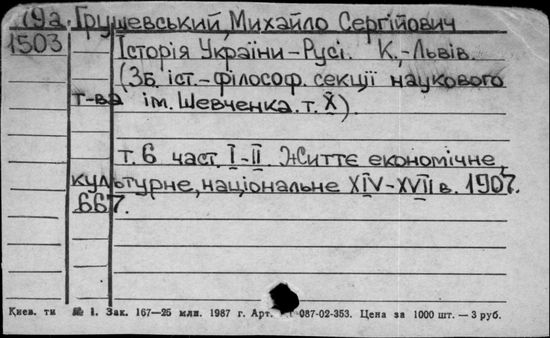 79а. Грушевський, Михайло Сергійович
1503 Історія України-Русі. К.,-Львів.
(Зб. іст.-філософ. секції наукового
т-ва ім. Шевченка. т. X).
т. 6 част. I-II. Життє економічне,
культурне, національне XIV-XVII в. 1907.
667.
Киев. ти № 1. Зак. 167—25 млн. 1987 г. Арт. 087-02-353. Цена за 1000 шт. — 3 руб.